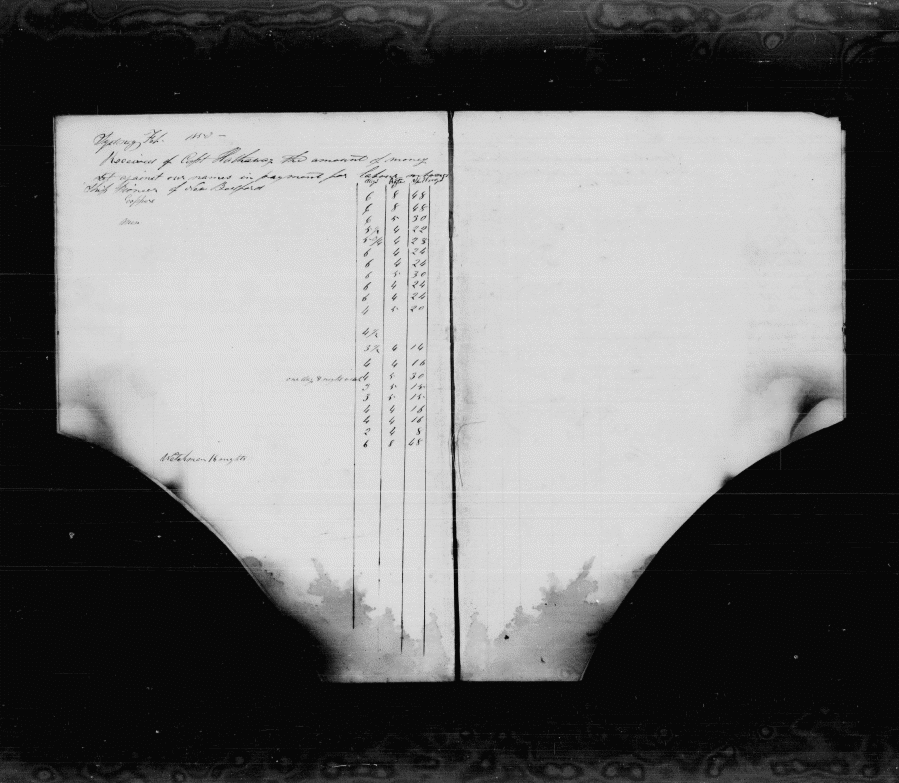 Sydney, Feb.
Received of Capt Hathaway the amount of money
set against our names in payment for labour on board
Ship of New Bedford
days Rate
6 8 48
6 8 48
6 5 30
5½ 4 22
5¾ 4 23
6 4 24
6 4 24
6 5 30
6 4 24
6 4 24
4 5 20
4½
3½ 4 14
4 4 16
one day & 4 5 30
3 5 15
3 5 15
4 4 16
4 4 16
2 4 8
6 8 48